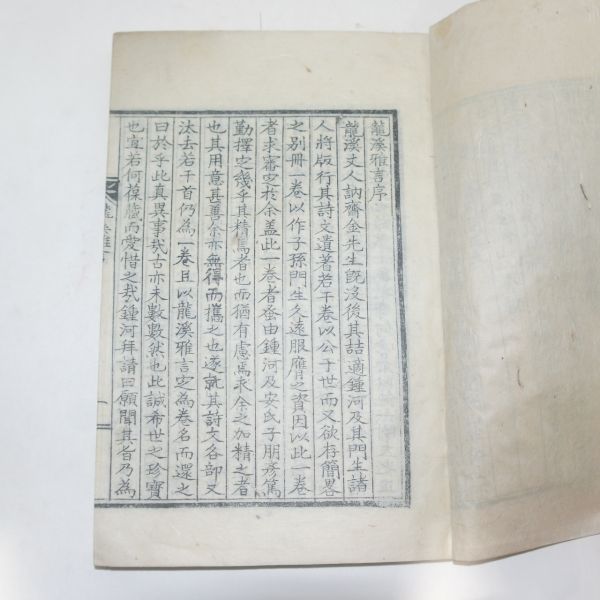 龍溪雅言序
龍溪丈人訥齋金先生旣沒後其喆適鍾河及其門生諸
人將版行其詩文遺著若干卷以公于世而又欲存簡畧
之別冊一卷以作子孫門生久遠服膺之資因以此一卷
者求審定於余盖此一卷者蚤由鍾河及安氏子朋彦篤
勤擇定幾乎其精焉者也而猶有慮焉求余之加精之者
也其用意甚善余亦無得而攜之也遂就其詩文各部又
汰去若干首仍為一卷且以龍溪雅言定為卷名而還之
曰於乎此真異事哉古亦未數數然也此誠希世之珍寶
也宜若何葆護而愛惜之哉鍾河拜請曰願聞其旨乃為